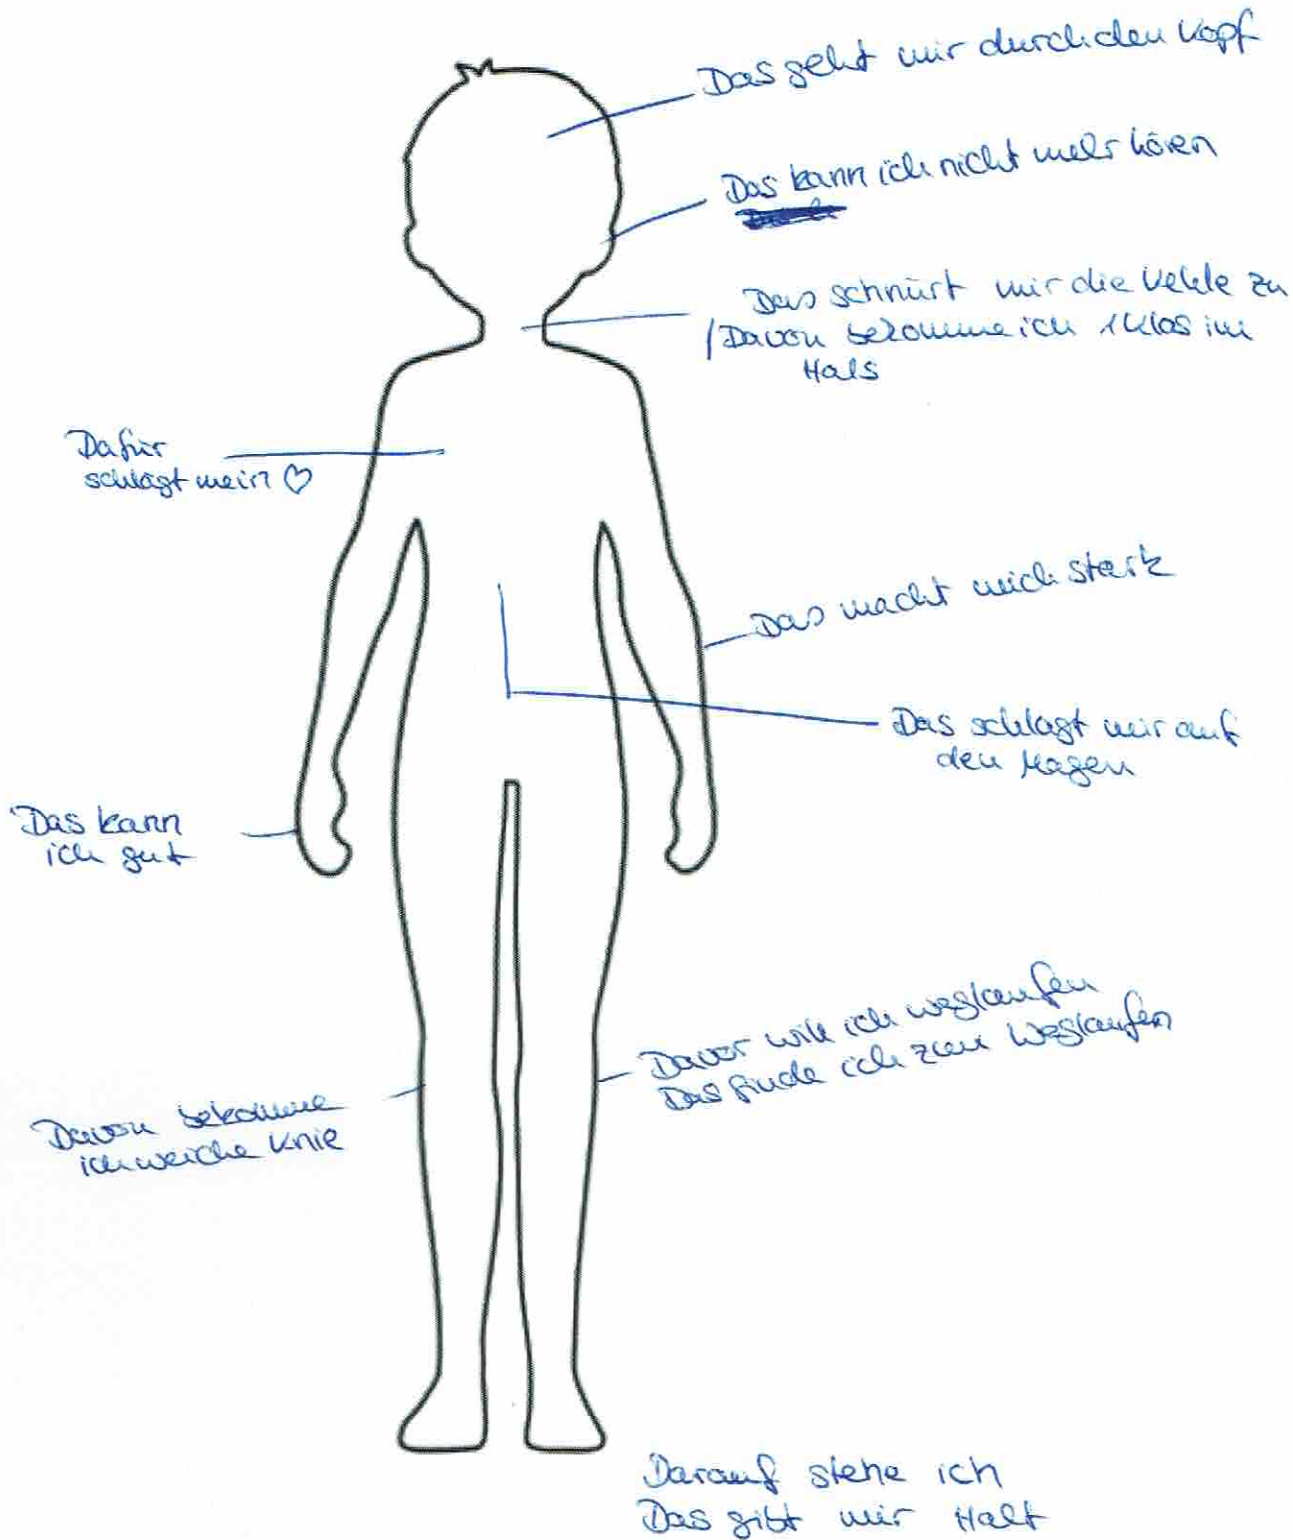 Das geht mir durch den Kopf
Das kann ich nicht mehr hören
Das schnürt mir die Kehle zu
/Davon bekomme ich 1 Klos im
Hals
Dafür
schlägt mein ♡
Das macht mich stark
Das schlägt mir auf
den Magen
Das kann
ich gut
Davor will ich weglaufen
Das finde ich zum Weglaufen
Davon bekomme
ich weiche Knie
Darauf stehe ich
Das gibt mir Halt